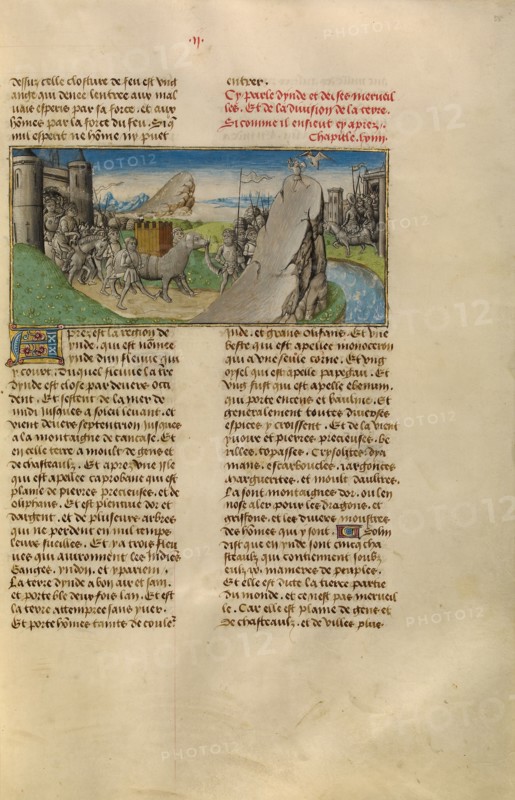 .ii.
dessus celle closture de feu est ung
ange qui denee lentree aux mal
vais esperis par sa force. et aux
hommes par la force du feu. Si q̄
nul esperit ne home ny puet
entrer.
Cy parle dynde et de ses merveil
les. Et de la division de la terre.
Si comme il ensieut cy apres.
Chapitle.
Aprez est la region de
ynde. qui est nōmee
ynde dun fleuve qui
y court. Duquel fleuve la tre
dynde est close par devers occi
dent. Et sestent de la mer de
midi iusques a soleil levant. et
vient devers septentrion iusques
a la montaigne de caucase. Et
en celle terre a moult de gens et
de chasteaulz. Et aprez une isle
qui est apellee caprobane qui est
plaine de pierres precieuses. et de
oliphans. Et est plentive dor et
dargent. et de pluseurs arbres
qui ne perdent en nul temps
leurs fueilles. Et y a trois fleu
ves qui avironnent les Indies
Ganges. yndon. et yparien.
La terre dynde a bon air et sain.
et porte ble deux fois lan. Et est
la terre attempree sans yver.
Et porte hōmes tainte de coule
ynde. et grans olifans. Et une
beste qui est apellee monoceron
qui a une seule corne. Et ung
oysel qui est apelle papegau. Et
ung fust qui est apelle ebenum.
qui porte encens et bauline. Et
generalement toutes diverses
espices y croissent. Et de la vient
yvoire et pierres precieuses. be
rilles. topasses. Crysolites. dya
mans. escarboucles. iargonces
marguerites. et moult daultres.
La sont montaignes dor. ou len
nose aler pour les dragons. et
griffons. et les divers monstres
des hōmes qui y sont. Solin
dist que en ynde sont cincq cha
steaulz qui contiennent soubz
eulz manieres de peuples.
Et elle est dicte la tierce partie
du monde. et ce nest pas merveil
le. Car elle est plaine de gens et
De chasteaulz. et de villes plus
PHOTO12